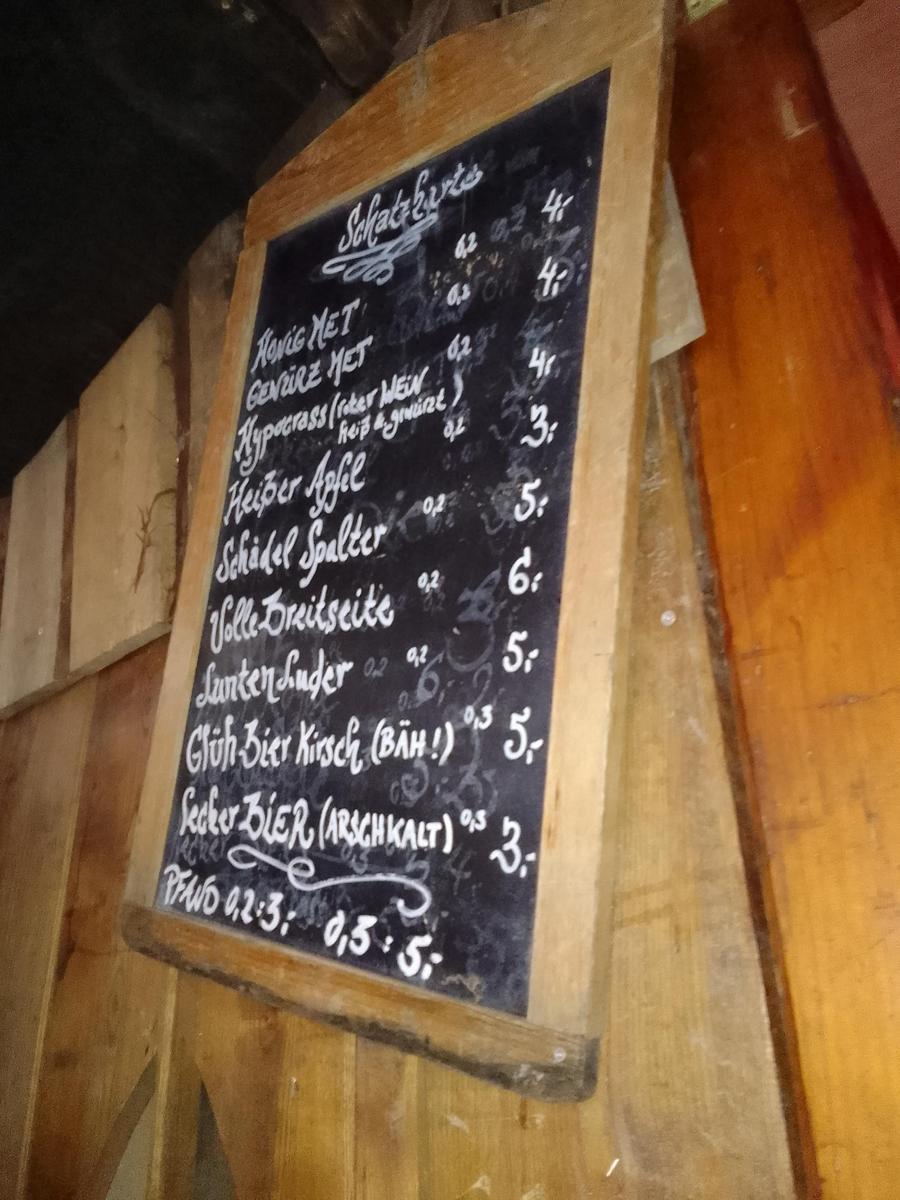 Schatzkarte
HONiG MET 0,2 4,-
GEWÜRZ MET 0,2 4,-
Hypocrass (roter WEiN 0,2 4,-
heiß & gewürzt)
Heißer Apfel 0,2 3,-
Schädel Spalter 0,2 5,-
Volle Breitseite 0,2 6,-
Lunten Luder 0,2 5,-
Glüh-Bier Kirsch (BÄH!) 0,3 5,-
Lecker BiER (ARSCHKALT) 0,3 3,-
PFAND 0,2:3,- 0,3:5,-